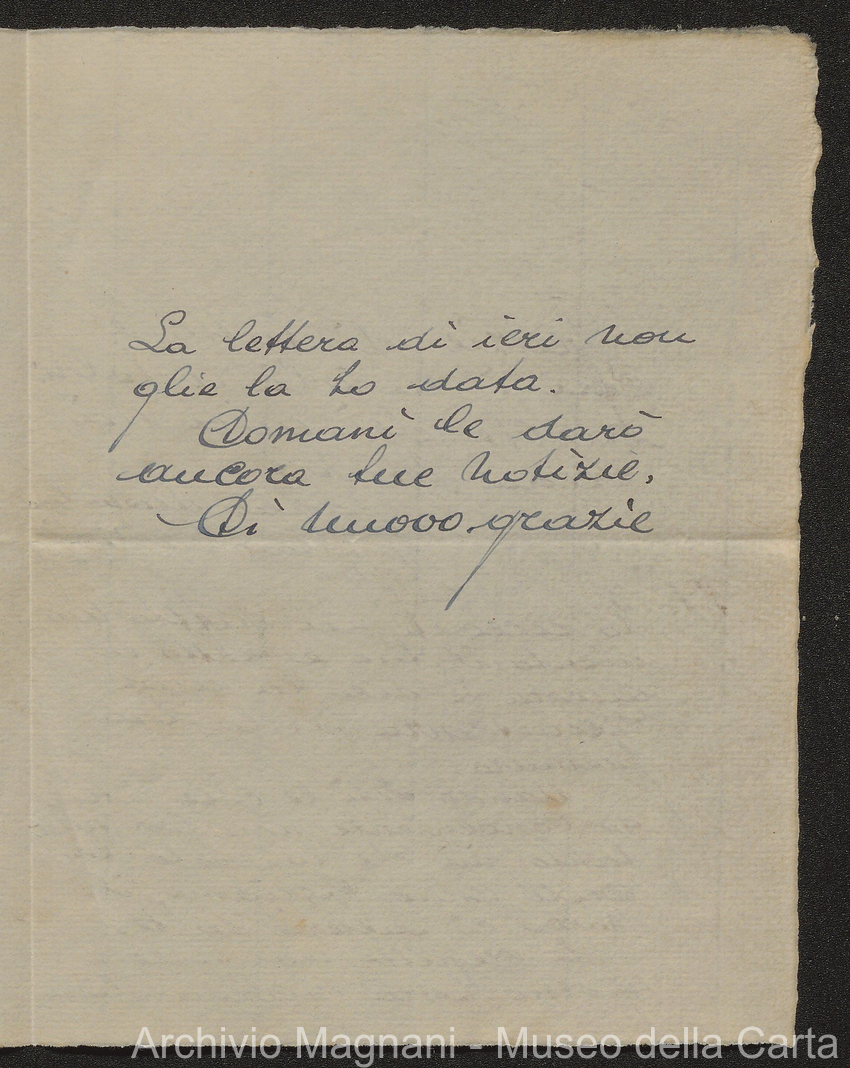 La lettera di ieri non
glie la ho data.
Domani le darò
ancora tue notizie.
Di nuovo grazie
Archivio Magnani - Museo della Carta